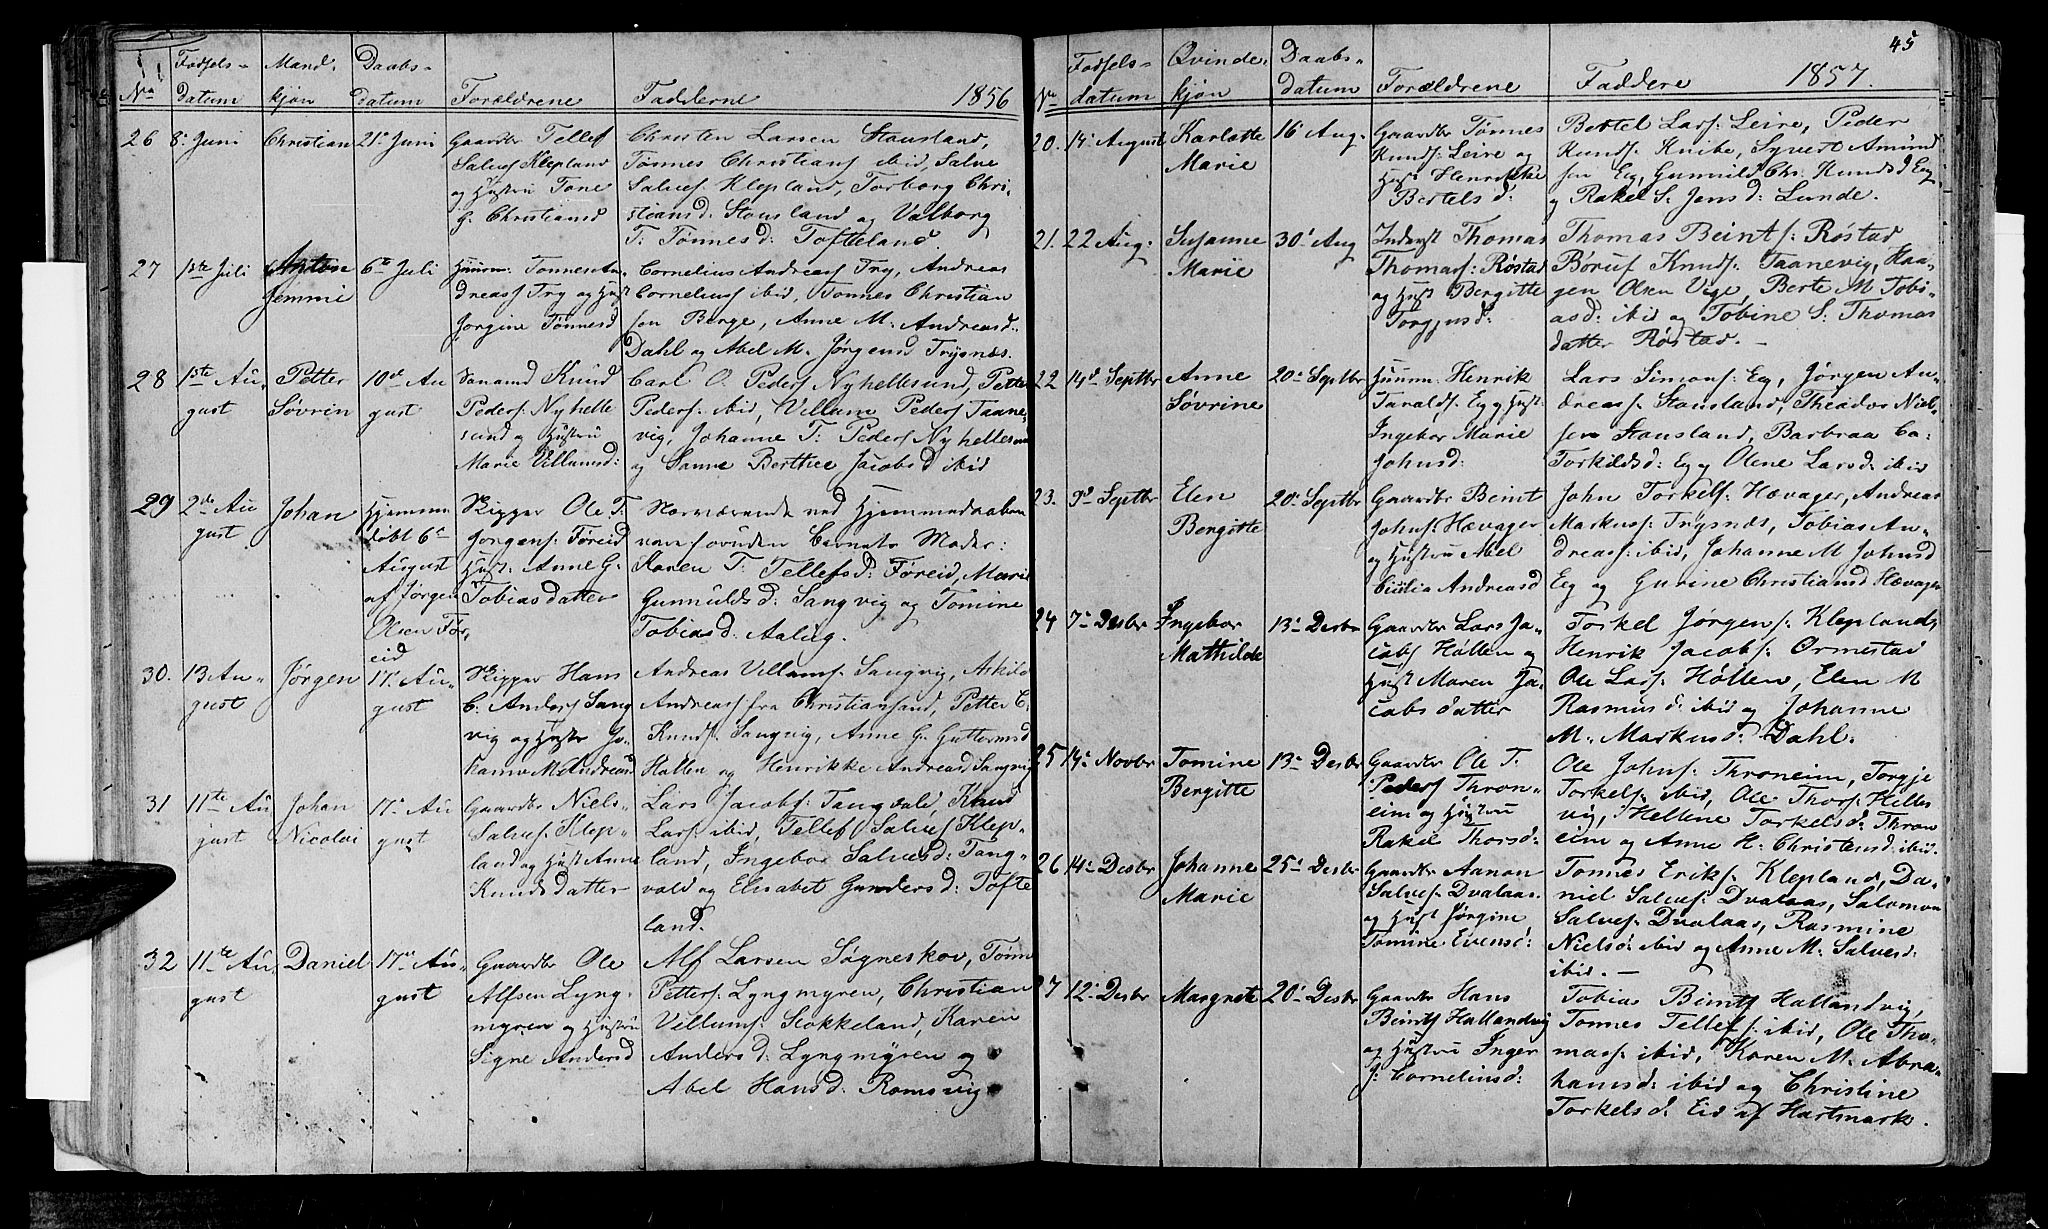 No Fødsels- datum Mand- kjøn Daabs- datum Forældrene Fadderne 1856
26 8de Juni Christian 21de Juni Gaardbr Tellef
Salves. Klepland
og Hustru Tone
G. Christiansd
Christen Larsen Stousland,
Tønnes Christians. ibid, Salve
Salves. Klepland, Torborg Chri-
stiansd: Stousland og Valborg
T: Tønnesd: Tofteland.
27 1ste Juli Anton
Jemmi
6te Juli
Huusm: Tønnes An-
dreass Try og Hust
Jørgine Tønnesd
Cornelius Andreass Try, Andreas
Corneliuss ibid, Tønnes Christian
sen Berge, Anne M. Andreasd:
Dahl og Abel M. Jørgensd Trysnæs.
28 1ste Au-
gust
Petter
Søvrin
10de Au
gust
Sømand Knud
Peders. Nyhelle
sund og Hustru
Marie Villumsd:
Carl O. Peders Nyhellesund, Petter
Peders: ibid, Villum Peders Taane-
vig, Johanne T: Peders Nyhellesund
og Sanne Berthee Jacobsd ibid
29 2den Au
gust
Johan
Hjemme
døbt 6te
August
af Jørgen
Olsen Før-
eid
Skipper Ole T.
Jørgens: Føreid
Hust: Anne G.
Tobiasdatter
Nærværende ved Hjemmedaaben
vare foruden Barnets Moder:
Karen T: Tellefsd: Føreid, Marie
Gunnuldsd: Sangvig og Tomine
Tobiasd: Aalug.
30. 13 Au-
gust
Jørgen
17de Au-
gust
Skipper Hans
C. Anders Sang
vig og Hustr Jo-
hanne M. Andreasd
Andreas Villums: Sangvig, Askild
Andreass fra Christiansand, Petter C.
Knuds: Sangvig, Anne G. Guttormsd
Hollen og Henrikke Andreasd Sangvig
31 11te Au
gust
Johan
Nicolai
17de Au
gust
Gaardbr Niels
Salves: Klep-
land og Hust Anne
Knudsdatter
Lars Jacobs: Tangvald, Knud
Lars: ibid, Tellef Salves Klep-
land, Ingebor Salvesd: Tang-
vald og Elisabet Gundersd: Tofte
land.
32 11te Au-
gust
Daniel
17de Au-
gust
Gaardbr Ole
Alfsen Lyng-
myren og Hustru
Signe Andersd
Alf Larsen Søgneskov, Tønnes
Petters: Lyngmyren, Christian
Villums: Stokkeland, Karen
Andersd: Lyngmyren og
Abel Hansd: Romsvig
45
No Fødsels- datum Qvinde- kjøn Daabs- datum Forældrene Faddere 1857.
20. 14de August
Karlotte
Marie
16 Aug.
Gaardbr Tønnes
Knuds: Leire og
Hust Henrikke
Bertelsd:
Bertel Lars: Leire, Peder
Knuds: Knibe, Syvert Amund
sen Eg, Gunnild Chr. Knudsd Eg
og Rakel S. Jensd: Lunde.
21. 22 Aug:
Susanne
Marie
30te Aug
Inderst Thomas
Thomas: Røstad
og Hust Bergitte
Torgjusd:
Thomas Beints: Røstad
Børuf Knuds: Taanevig, Haa-
gen Olsen Vige, Berte M. Tobi-
asd: ibid og Tobine S: Thomas
datter Røstad.-
22 14de Septbr
Anne
Søvrine
20de Septbr
Huusm: Henrik
Taralds: Eg og Hust:
Ingebor Marie
Johnsd:
Lars Simons: Eg, Jørgen An-
dreas: Stousland, Theodor Niel-
sen Stousland, Barbraa Ca-
Torkildsd: Eg og Olene Larsd: ibid
23. 9de Septbr
Elen
Bergitte
20de Septbr
Gaardbr Beint
Johns: Hævager
og Hustru Abel
Cecilia Andreasd
John Torkels: Hævager, Andreas
Markuss: Trysnæs, Tobias An-
dreass: ibid, Johanne M. Johnsd
Eg og Gurine Christiansd Hævager
24 7de Desbr
Ingebor
Mathilde
13de Desbr
Gaardbr Lars Ja-
cobs Høllen og
Hust Maren Ja-
cobsdatter
Torkel Jørgens: Klepland,
Henrik Jacobs: Ormestad
Ole Lars: Høllen, Elen M
Rasmusd: ibid og Johanne
M. Markusd: Dahl.
25 14de Novbr
Tomine
Bergitte
13de Desbr
Gaardbr Ole T.
Peders Thron-
eim og Hustru
Rakel Thorsd:
Ole Johns: Throneim, Torgje
Torkels: ibid, Ole Thors: Helles
vig, Hellene Torkelsd: Thron
eim og Anne H. Christensd: ibid.
26 14de Desbr
Johanne
Marie
25de Desbr
Gaardbr Aanon
Salves: Dvalaas.
og Hust Jørgine
Tomine Evensd:
Tønnes Eriks: Klepland, Da-
niel Salves: Dvalaas, Salomon
Salves: Dvalaas, Rasmine
Nielsd: ibid og Anne M. Salvesd:
ibid.-
27 12te Desbr
Margrete
20de Desbr
Gaardbr Hans
Beints Hallandvig
og Hustru Inger
J: Corneliusd:
Tobias Beints Hallandvig,
Tønnes Tellefs: ibid, Ole Tho-
mas: ibid, Karen M. Abra-
hamsd: ibid og Christine
Torkelsd: Eid af Hartmark.